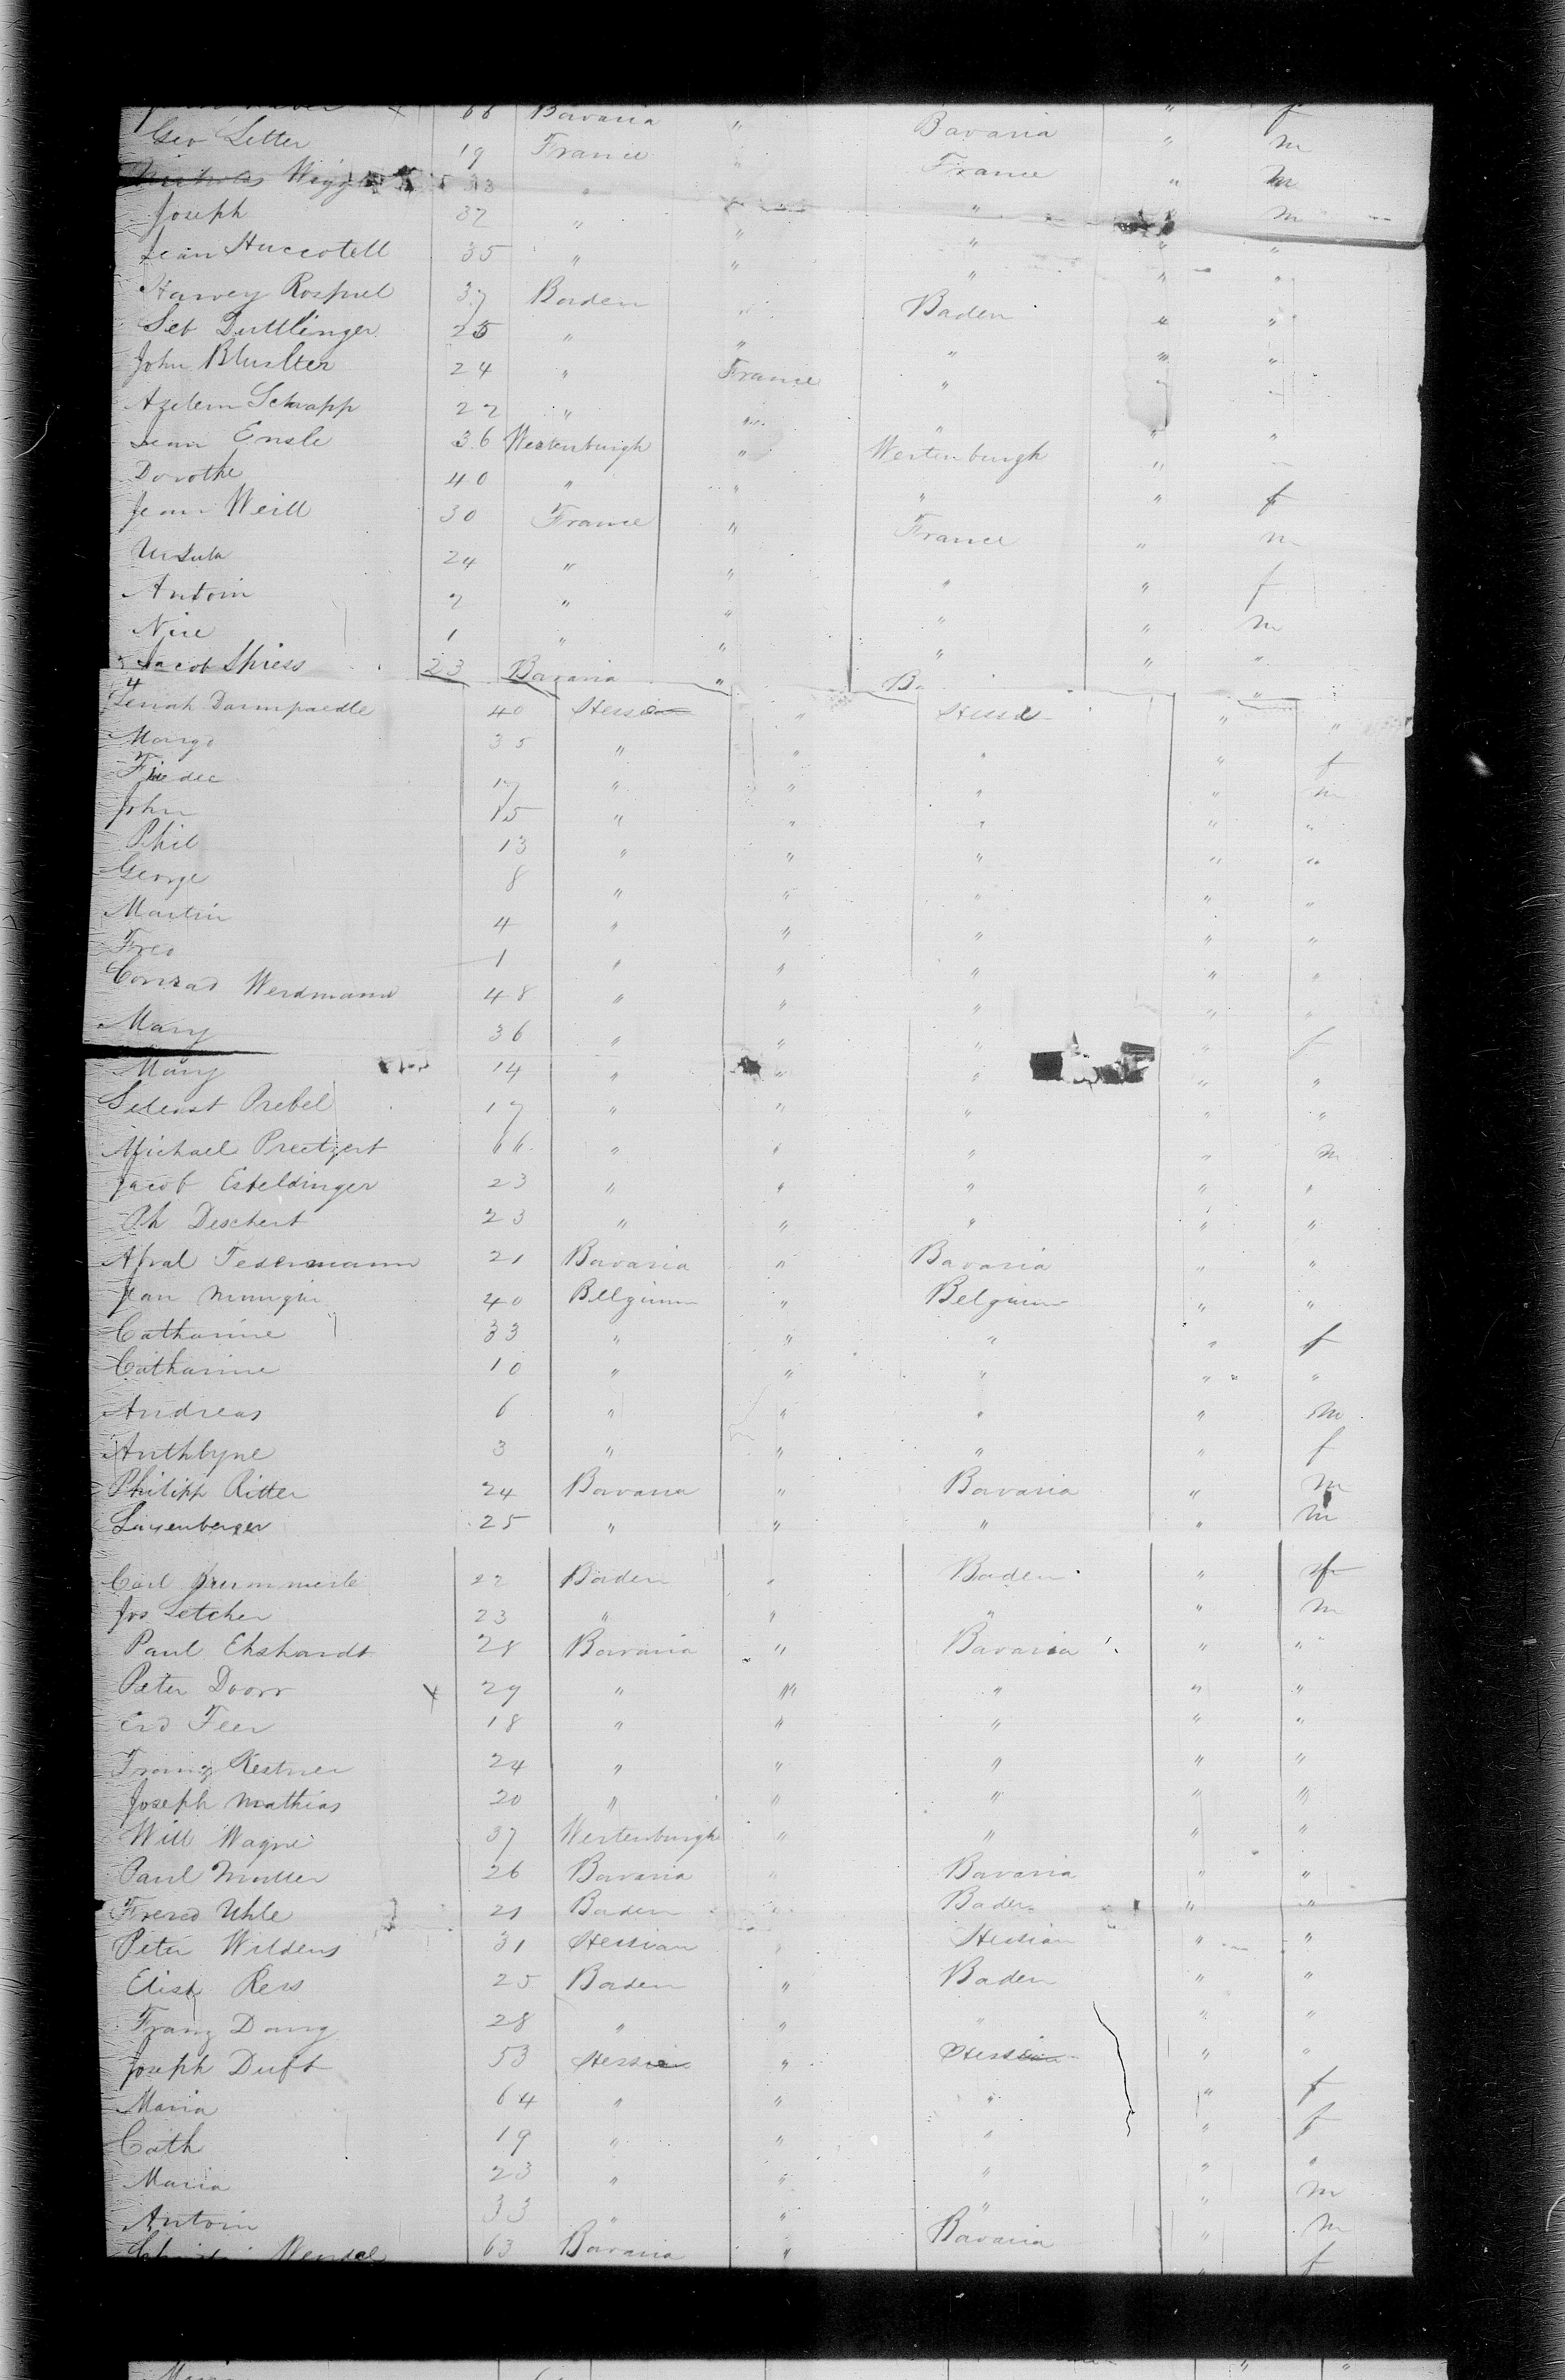 66 Bavaria " Bavaria " f
Geo Letter 19 France " France " m
Nicholas 33 " " m
Joseph 32 " " " " m
Jean Huccotell 35 " " " " "
Harvey Rospiel 37 Baden " Baden " "
Seb Duttlinger 25 " " " " "
John Blustter 24 " France " " "
Azelem Schrapp 22 " " " "
Jean Ensle 36 Westenburgh " Westenburgh " "
Dorothe 40 " " " " f
Jean Weill 30 France " France " m
Ursula 24 " " " " f
Antoin 2 " " " " m
Nice 1 " " " " "
Jacob Spiess 23 Bavaria " Ba "
4
Darmpaedle 40 Hesse " Hesse " "
Margr 35 " " " " f
Friedec 17 " " " " m
John 15 " " " " "
Phil 13 " " " " "
George 8 " " " " "
Martin 4 " " " " "
Fred 1 " " " " "
Conrad Werdmann 48 " " " " "
Mary 36 " " " " f
Mary 14 " " " " "
Sebeast Prebel 17 " " " " "
Michael Preetzert 66 " " " " m
Jacob Esteldinger 23 " " " " "
Ph Deschert 23 " " " " "
Abral Federmann 21 Bavaria " Bavaria " "
Jean 40 Belgium " Belgium " "
Catharine 33 " " " " f
Catharine 10 " " " " "
Andreas 6 " " " " m
Anthbyne 3 " " " " f
Philipp Ritter 24 Bavaria " Bavaria " m
Layenberger 25 " " " " m
Carl 22 Baden " Baden " f
Jos Letcher 23 " " " " m
Paul Ekshardt 28 Bavaria " Bavaria " "
Peter Doorr x 29 " " " " "
Erd Feer 18 " " " " "
Franz Kestner 24 " " " " "
Joseph Mathias 20 " " " " "
Will Wagne 37 Westenburgh " " " "
Paul Muller 26 Bavaria " Bavaria " "
Frered Uhle 21 Baden " Baden " "
Peter Wildens 31 Hessian " Hessian " "
Elist Ress 25 Baden " Baden " "
Franz Dang 28 " " " " "
Joseph Duft 53 Hesse " Hesse " "
Maria 64 " " " " f
Cath 19 " " " " f
Maria 23 " " " " "
Antoin 33 " " " " m
Wendel 63 Bavaria " Bavaria " m
f